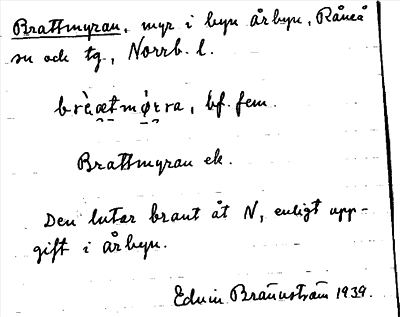 Brattmyran, myr i byn Årbyn, Råneå
sn och tg., Norrb. l.
brὲætmø̀rra, bf. fem.
Brattmyran ek.
Den lutar brant åt N, enligt upp-
gift i Årbyn.
Edvin Brännström 1939.